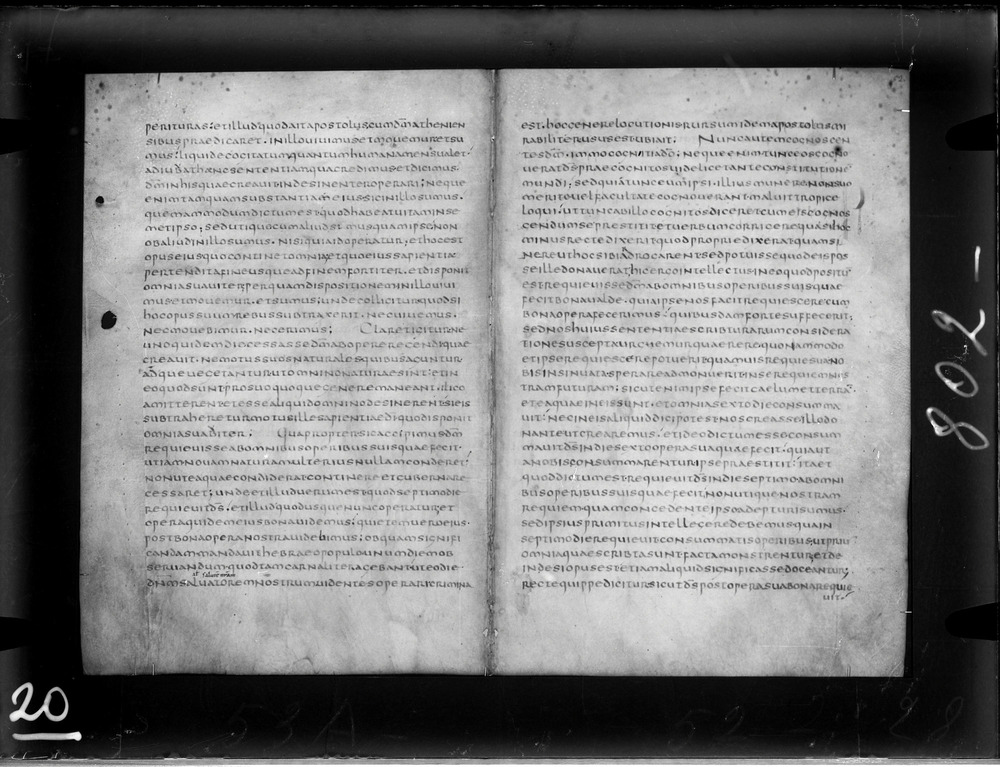 perituras: et illud quod ait apostolus cum dm athenien
sibus praedicaret. in illo uiuimus et mouemur et su
mus: liquide cogitatum quantum humana mens ualet
adiuuat hanc sententiam qua credimus et dicimus.
dm in his quae creauit indesinenter operari; neque
enim tamquam substantia eius sic in illo sumus.
quemadmodum dictum est quod habeat uitam in se
met ipso; sed utique cum aliud simus quam ipse. non
ob aliud in illo sumus. nisi quia id operatur, et hoc est
opus eius quo continet omnia et quo eius sapientia
pertendit a fine usque ad finem fortiter. et disponit
omnia suauiter per quam dispositionem in illo uiui
mus et mouemur. et sumus; unde colligitur quod si
hoc opus suum rebus subtraxerit. nec uiuemus.
nec mouebimur. nec erimus; Claret igitur ne
uno quidem die cessasse dm ab opere regendi quae
creauit. ne motus suos naturales quibus aguntur
atque uegetantur ut omnino naturae sint: et in
eo quod sunt pro suo quoque genere maneant. ilico
amitterent et esse aliquid omnino desinerent si eis
subtraheretur motus ille sapientiae di quo disponit
omnia suauiter; Quapropter sic accipimus dm
requieuisse ab omnibus operibus suis quae fecit.
ut iam nouam naturam ulterius nullam conderet
non ut ea quae condiderat continere et gubernare
cessaret; unde et illud uerum est quod septimo die
requieuit ds. et illud quod usque nunc operatur; et
opera quidem eius bona uidemus; quietem uero eius.
post bona opera nostra uidebimus; ob quam signifi
candam mandauit hebraeo populo unum diem ob
seruandum quod tam carnaliter agebant ut eo die
dnm saluatorem nostrum uidentes operari crimina
est. hoc genere locutionis rursum idem apostolus mi
rabiliter usus est ubi ait. Nunc autem cognoscen
tes dm. immo cogniti a do; neque enim tunc eos cogno
uerat ds praecognitos uidelicet ante constitutione
mundi; sed quia tunc eum ipsi. illius munere non suo
merito uel facultate cognouerant. maluit tropice
loqui. ut tunc ab illo cognitos diceret cum eis cognos
cendum se praestitit et uerbum corrigere quasi hoc
minus recte dixerit quod proprie dixerat quam si
nere ut hoc sibi adrogarent se id potuisse quod eis pos
se ille donauerat hic ergo intellectus in eo quod positu
est requieuisse dm ab omnibus operibus suis quae
fecit bona ualde. quia ipse nos facit requiescere cum
bona opera fecerimus: quibusdam forte suffecerit;
sed nos huius sententiae scripturarum considera
tione suscepta urgemur quaerere quonam modo
et ipse requiescere potuerit quamuis requie sua no
bis insinuata sperare admonuerit nos requiem nos
tram futuram; sicut enim ipse fecit caelum et terra.
et ea quae in eis sunt. et omnia sexto die consumma
uit: nec in eis aliquid dici potest nos creasse illo do
nante ut crearemus. et ideo dictum esse consum
mauit ds in die sexto opera sua quae fecit. quia ut
a nobis consummarentur ipse praestitit: ita et
quod dictum est requieuit ds in die septimo ab omni
bus operibus suis quae fecit. non utique nostram
requiem quam concedente ipso adepturi sumus.
sed ipsius primitus intellegere debemus qua in
septimo die requieuit consummatis operibus. ut prius
omnia quae scripta sunt facta monstrentur et de
inde si opus est etiam aliquid significasse doceantur;
recte quippe dicitur sicut ds post opera sua bona requie
uit.
20
802